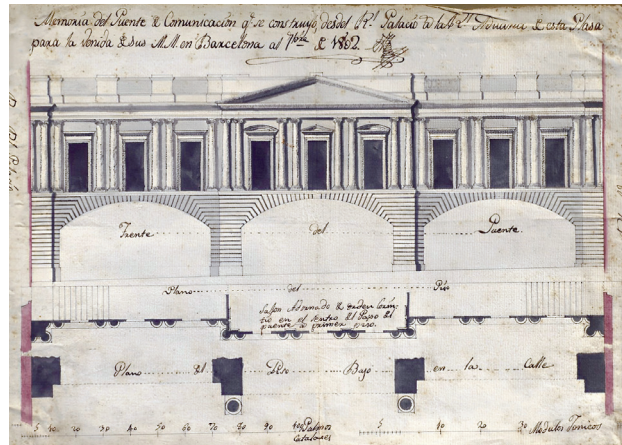 Memoria del Puente de Comunicación qe. se construyó, desdel Rl. Palacio de la Rl. Aduana de esta Plasa
para la venida de sus M.M. en Barcelona al 7bre. de 1802.
Frente del Puente.
Plano del Piso
Salon Adornado de orden Corin
tio en el Sentro del Paso del
puente a primer piso.
Plano del Piso Bajo en la Calle
5 10 20 30 40 50 60 70 80 90 Palmos Catalanes
5 10 20 30 Modulos Jonicos